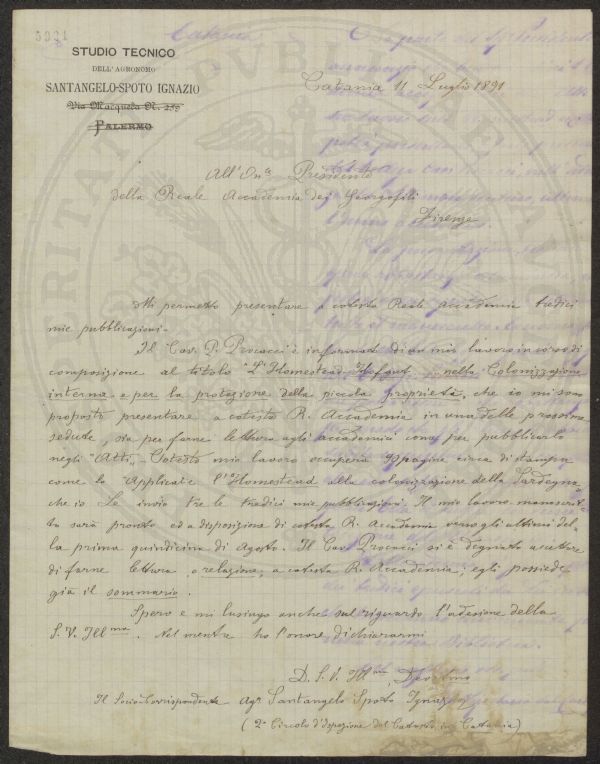 5921
STUDIO TECNICO
DELL'AGRONOMO
SANTANGELO-SPOTO IGNAZIO
Via Macqueda N. 250
PALERMO
Catania 11 Luglio 1891
All'On.le Presidente
della Reale Accademia dei Georgofili
Firenze
Mi permetto presentare a cotesta Reale Accademia tredici
mie pubblicazioni.
Il Cav. P. Procacci è informato di un mio lavoro in corso di
composizione al titolo "L'Homestead nella Colonizzazione
interna e per la protezione della piccola proprietà, che io mi son
proposto presentare a cotesta R. Accademia in una delle prossime
sedute, sia per farne lettura agli accademici come per pubblicarlo
negli "Atti". Cotesto mio lavoro occuperà pagine circa di stampa
come lo "Applicate l'Homestead alla colonizzazione della Sardegna,
che io Le invio tre le tredici mie pubblicazioni. Il mio lavoro manoscrit-
to sarà pronto ed a disposizione di cotesta R. Accademia verso gli ultimi del-
la prima quindicina di Agosto. Il Cav. Procacci si è degnato accettare
di farne lettura, o relazione, a cotesta R. Accademia; egli possiede
già il sommario.
Spero e mi lusingo anche sul riguardo l'adesione della
S. V. Ill.ma. Nel mentre ho l'onore di dichiararmi
D. S. V. Ill.ma Devotmo
Il Socio-Corrispondente Agr. Santangelo Spoto Ignazio
(2° Circolo d'Ispezione del Catasto in Catania)